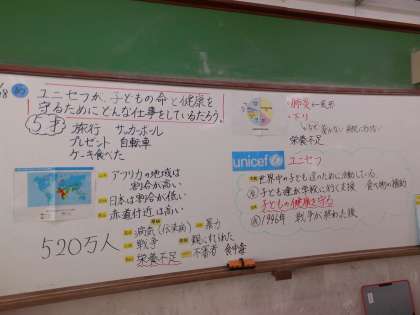 18 め ユニセフが、子どもの命と健康を
守るためにどんな仕事をしているだろう。
5才 旅行 サッカーボール
プレゼント 自転車
ケーキ食べた
アフリカの地域は
割合が高い
日本は割合が低い
赤道付近は高い
520万人
病気(伝染病) 暴力
戦争 親に
栄養不足 不審者 食中毒
・肺炎
・下り
栄養不足
unicef ユニセフ
世界中の子ども達のために活動している
子ども達が学校に行く支援 食べ物の補助
子どもの健康を守る
1946年 戦争が終わった後